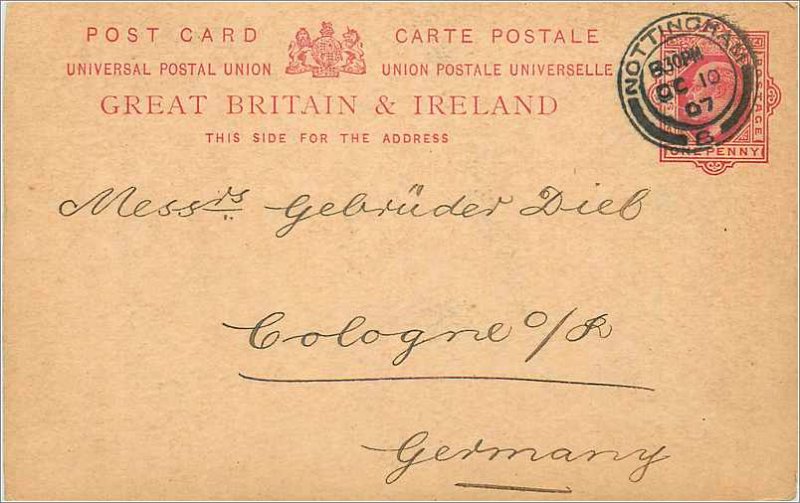 POST CARD CARTE POSTALE
UNIVERSAL POSTAL UNION UNION POSTALE UNIVERSELLE
GREAT BRITAIN & IRELAND
THIS SIDE FOR THE ADDRESS
NOTTINGHAM
8.30PM
OC 10
07
6
POSTAGE
ONE PENNY
Messrs Gebrüder Dieb
Cologne o/R
Germany